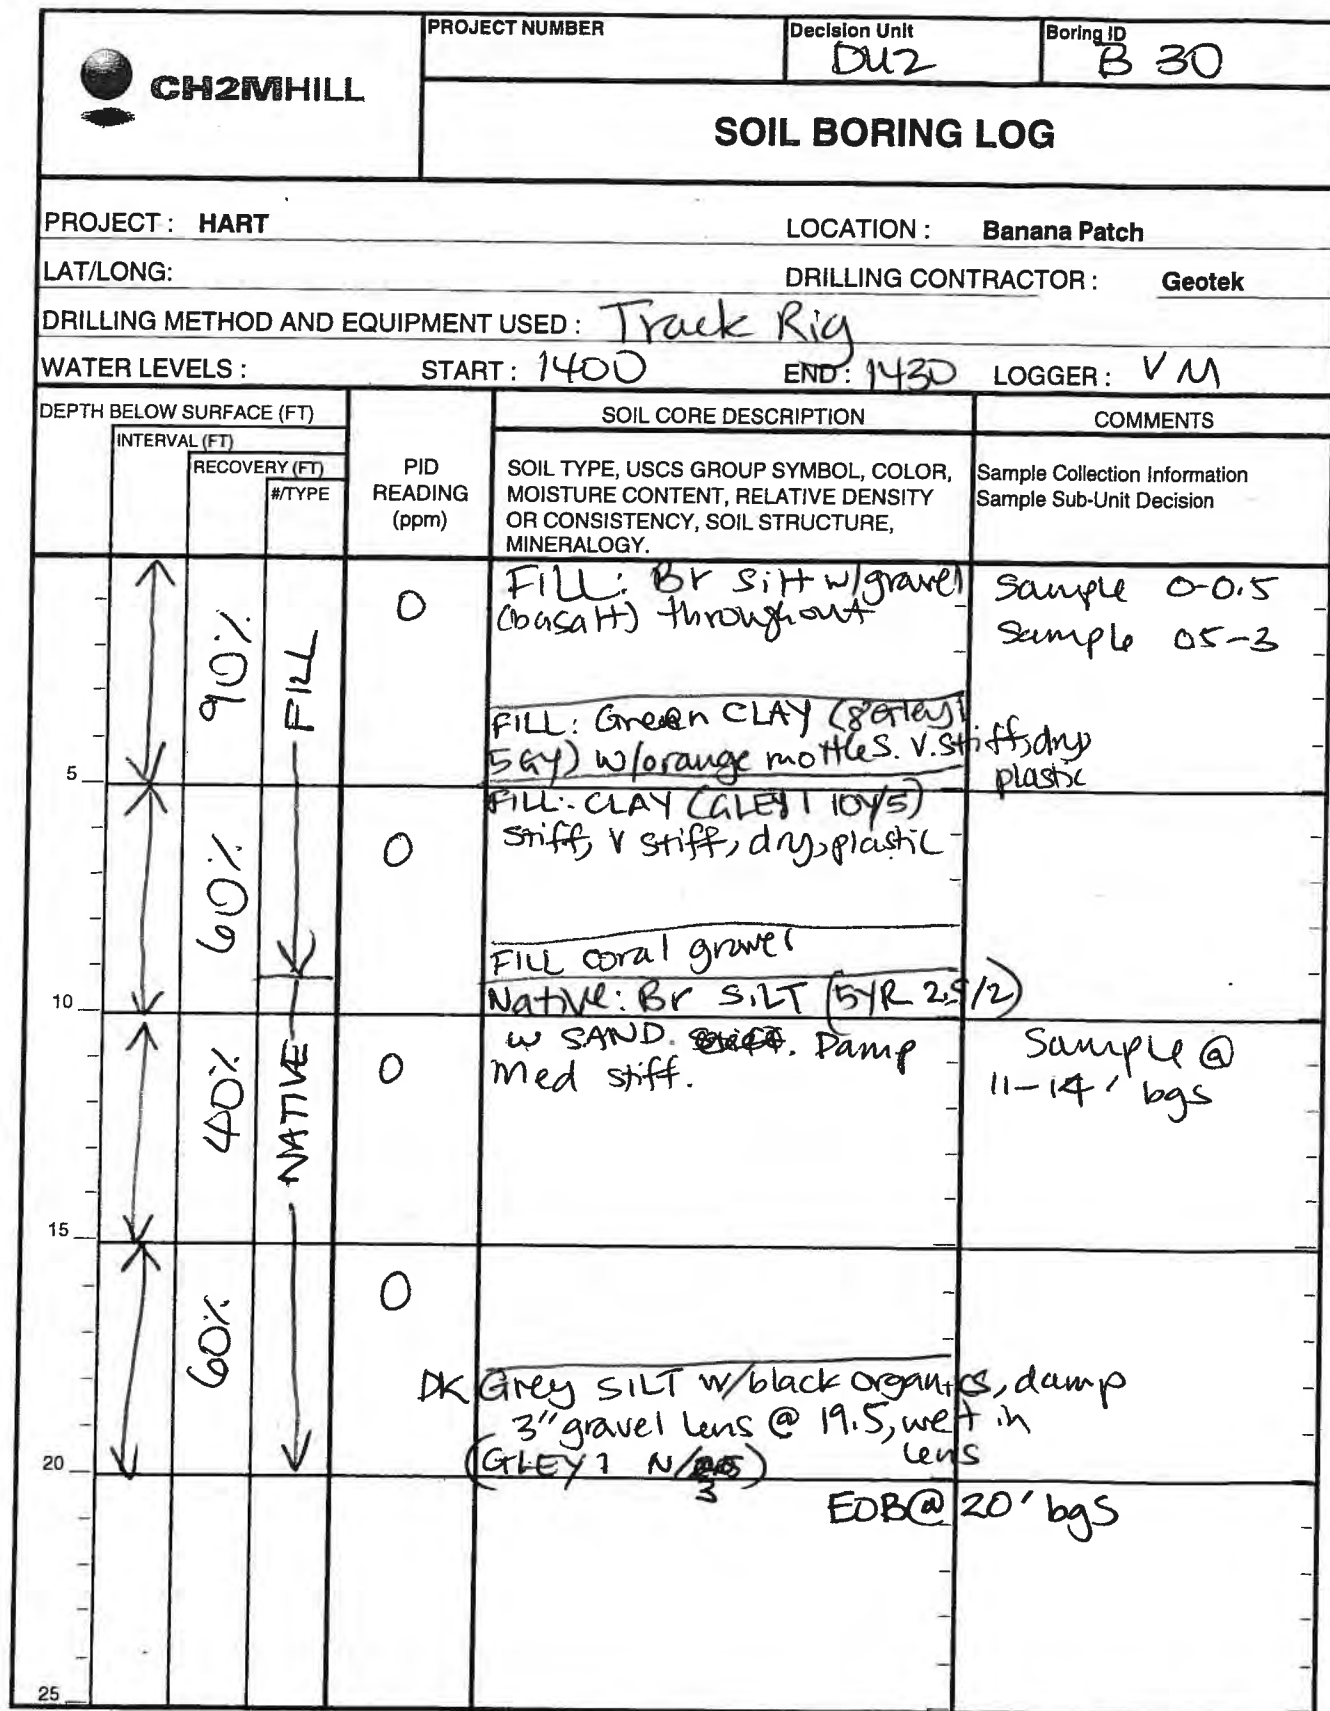 CH2MHILL
PROJECT NUMBER
Decision Unit
DU2
Boring ID
B 30
SOIL BORING LOG
PROJECT : HART
LOCATION : Banana Patch
LAT/LONG:
DRILLING CONTRACTOR : Geotek
DRILLING METHOD AND EQUIPMENT USED : Track Rig
WATER LEVELS : START : 1400 END : 1430 LOGGER : VM
DEPTH BELOW SURFACE (FT)
INTERVAL (FT)
RECOVERY (FT)
#/TYPE
PID
READING
(ppm)
SOIL CORE DESCRIPTION
SOIL TYPE, USCS GROUP SYMBOL, COLOR,
MOISTURE CONTENT, RELATIVE DENSITY
OR CONSISTENCY, SOIL STRUCTURE,
MINERALOGY.
COMMENTS
Sample Collection Information
Sample Sub-Unit Decision
90%
FILL
0
FILL: Br silt w/gravel
(basalt) throughout
Sample 0-0.5
Sample 05-3
FILL: Green CLAY (Gley 1
5GY) w/orange mottles. V. stiff, dry
plastic
5
60%
0
FILL: CLAY (GLEY 1 10Y/5)
stiff, V stiff, dry, plastic
FILL coral gravel
Native: Br SILT (5YR 2.5/2)
10
40%
NATIVE
0
w SAND. Damp
Med stiff.
Sample @
11-14' bgs
15
60%
0
DK Grey SILT w/black organics, damp
3" gravel lens @ 19.5, wet in
lens
(GLEY 1 N/3)
20
EOB@ 20' bgs
25